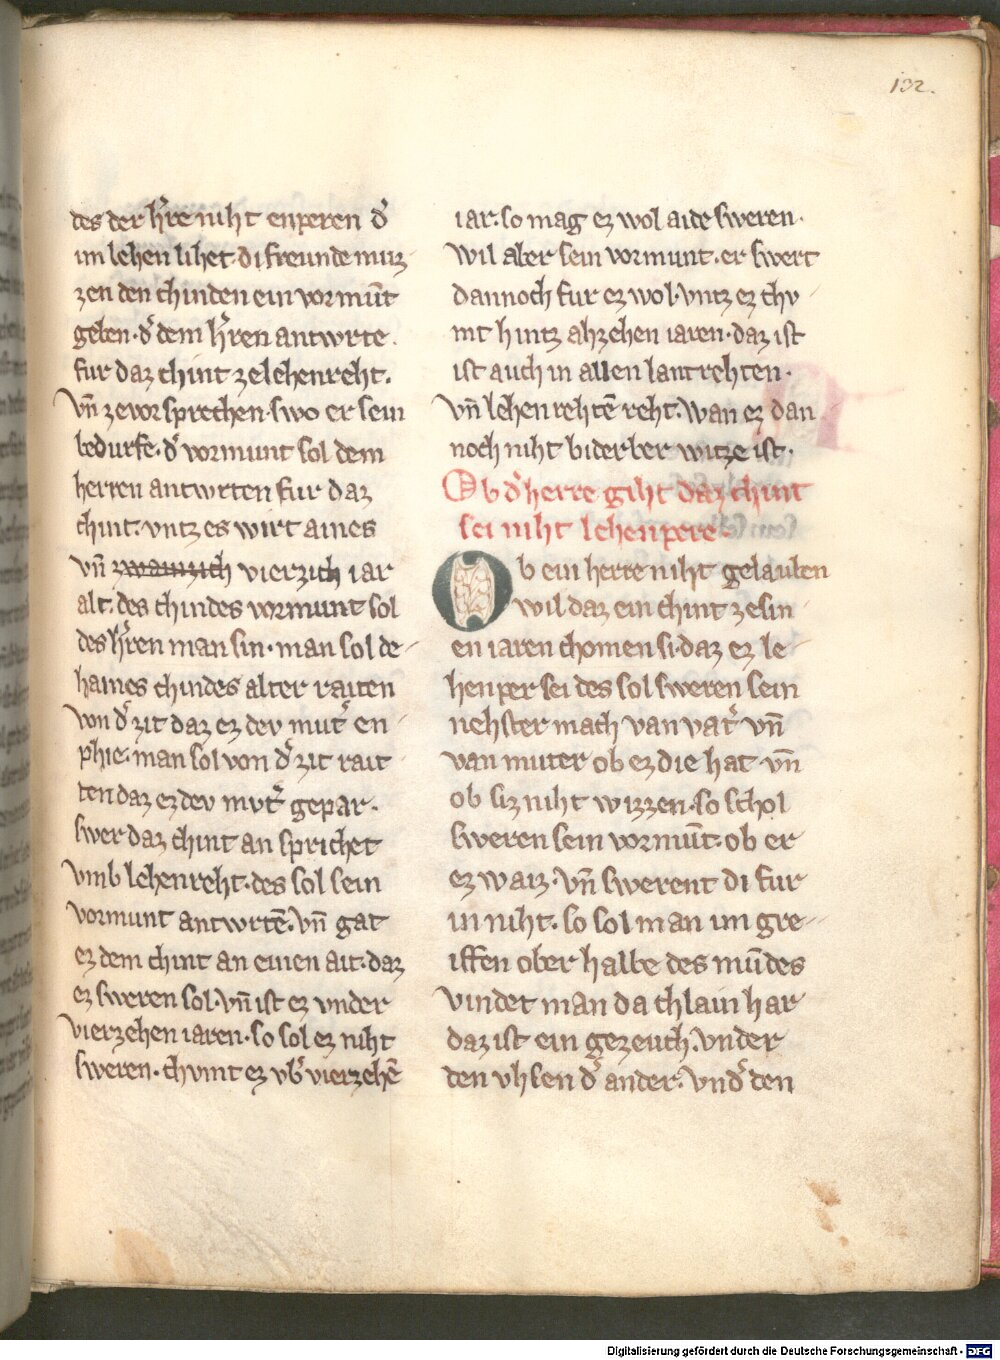 132.
des der h̾re niht enperen d̾
im lehen lihet. di freunde muz
zen den chinden ein vormūt
geben. d̾ dem h̾ren antwrte.
fur daz chint ze lehenreht.
vn̄ zevor sprechen. swo er sein
bedurfe. d̾ vormunt sol dem
herren antwrten fur daz
chint. vntz es wirt aines
vn̄ zwainzich vierzich iar
alt. des chindes vormunt sol
des h̾ren man sin. man sol de-
haines chindes alter raiten
von d̾ zit daz ez dev mut̾ en-
phie. man sol von d̾ zit rait
ten daz ez dev mvt̾ gepar.
swer daz chint an sprichet
vmb lehenreht. des sol sein
vormunt antwrtē. vn̄ gat
ez dem chint an einen ait. daz
ez sweren sol. vn̄ ist ez vnder
vierzehen iaren. so sol ez niht
sweren. chvmt ez vb̾ vierzehē
iar. so mag ez wol aide sweren.
wil aber sein vormunt. er swert
dannoch fur ez wol. vntz ez chv-
mt hintz ahzehen iaren. daz ist
ist auch in allen lantrehten.
vn̄ lehenrehtē reht. wan ez dan-
noch niht biderber witze ist.
Ob d̾ herre giht daz chint
sei niht lehenpere.
Ob ein herre niht gelauben
wil daz ein chint ze sin-
en iaren chomen si. daz ez le-
henper sei des sol sweren sein
nehster mach van vat̾ vn̄
van muter ob ez die hat. vn̄
ob siz niht wizzen. so schol
sweren sein vormūt. ob er
ez waiz. vn̄ swerent di fur
in niht. so sol man im gre-
iffen ober halbe des mūdes
vindet man da chlain har
daz ist ein gezeuch. vnder
den vhsen d̾ ander. vnd̾ den
Digitalisierung gefördert durch die Deutsche Forschungsgemeinschaft - DFG